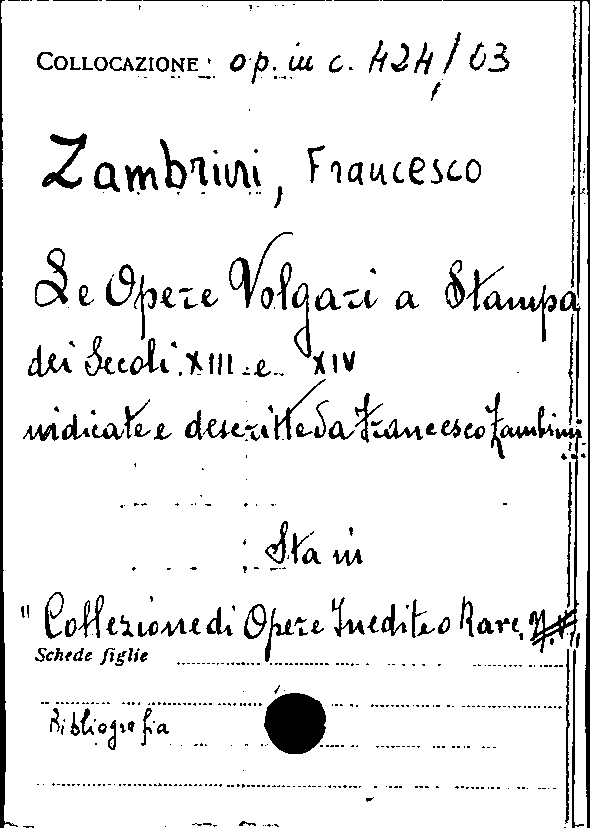 COLLOCAZIONE: op. in c. 424/03
Zambrini, Francesco
Le Opere Volgari a Stampa
dei Secoli XIII e XIV
indicate e descritte da Francesco Zambrini
Sta in
"Collezione di Opere Inedite o Rare,
Schede figlie
Bibliografia